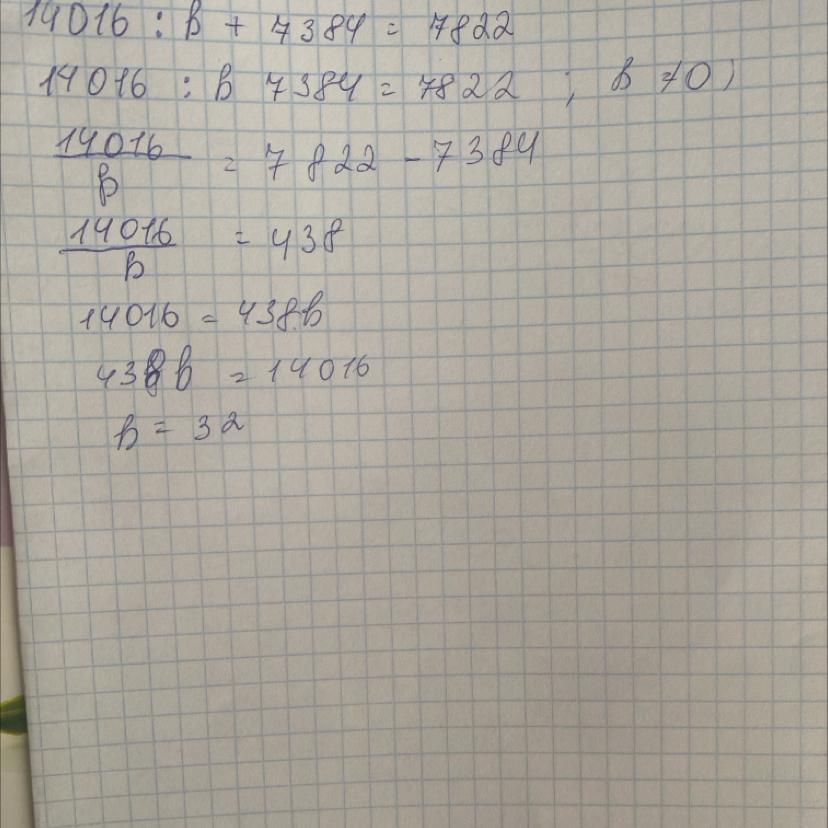 14016 : в + 7384 = 7822
14016 : в 7384 = 7822 ; в ≠ 0)
14016/в = 7822 - 7384
14016/в = 438
14016 = 438в
438в = 14016
в = 32